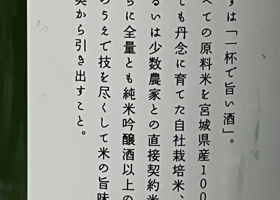 ずは「一杯で旨い酒」。
べての原料米を宮城県産100
ても丹念に育てた自社栽培米、
るいは少数農家との直接契約米
らに全量とも純米吟醸酒以上の
のうえで技を尽くして米の旨味
奥から引き出すこと。